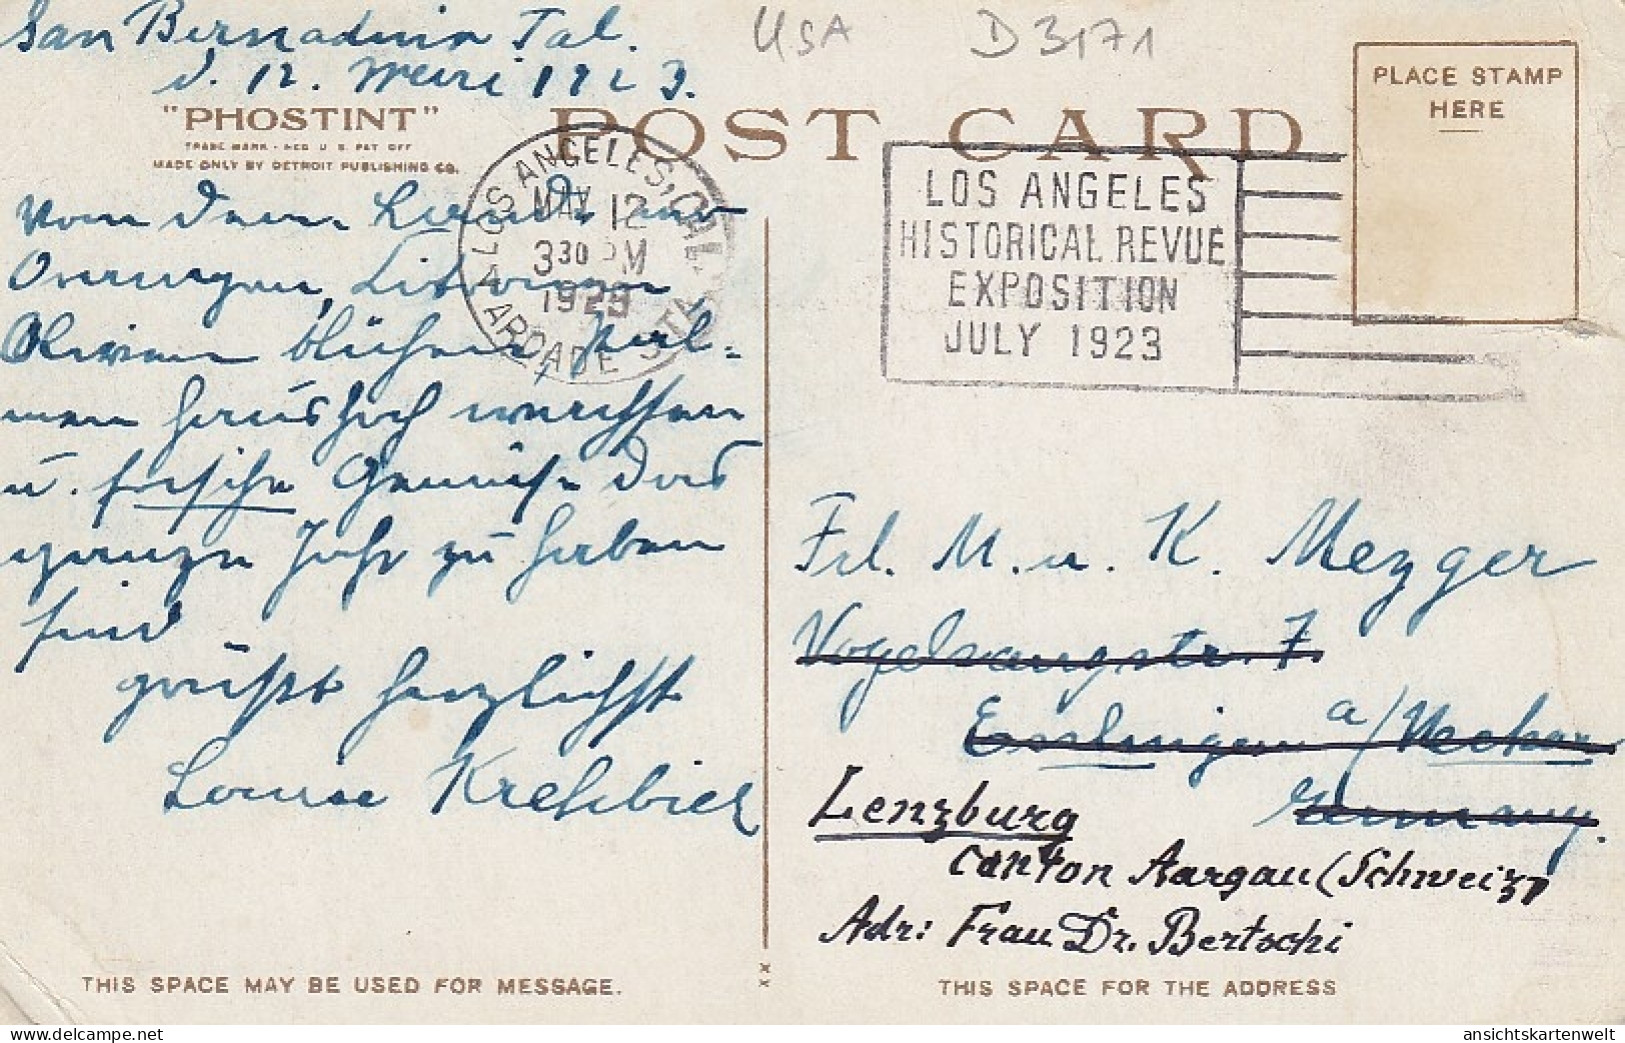 San Bernadino Tal.
d. 12. Mai 1923.
USA D3171
"PHOSTINT"
TRADE MARK - REG U S PAT OFF
MADE ONLY BY DETROIT PUBLISHING CO.
POST CARD
PLACE STAMP
HERE
LOS ANGELES, CAL.
MAY 12
330 PM
1923
ARCADE STA
LOS ANGELES
HISTORICAL REVUE
EXPOSITION
JULY 1923
Von dem Lande wo
Orangen, Zitronen,
Oliven blühen, Pal-
men haushoch wachsen
u. frische Gemüse das
ganze Jahr zu haben
sind
grüßt herzlichst
Louise Krehbiel
Frl. M. u. K. Mezger
Vogelsangstr. 7.
Esslingen a/Neckar
Germany.
Lenzburg
Canton Aargau (Schweiz)
Adr: Frau Dr. Bertschi
THIS SPACE MAY BE USED FOR MESSAGE.
THIS SPACE FOR THE ADDRESS
delcampe.net
ansichtskartenwelt